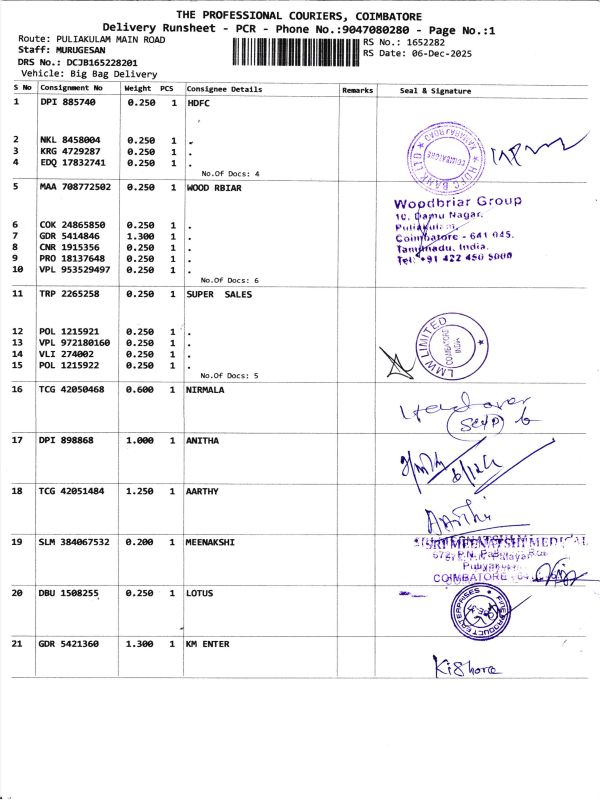 THE PROFESSIONAL COURIERS, COIMBATORE
Delivery Runsheet - PCR - Phone No.:9047080280 - Page No.:1
Route: PULIAKULAM MAIN ROAD
Staff: MURUGESAN
DRS No.: DCJB165228201
Vehicle: Big Bag Delivery
RS No.: 1652282
RS Date: 06-Dec-2025
S No Consignment No Weight PCS Consignee Details Remarks Seal & Signature
1 DPI 885740 0.250 1 HDFC
2 NKL 8458004 0.250 1 .
3 KRG 4729287 0.250 1 .
4 EDQ 17832741 0.250 1 .
No.Of Docs: 4
HDFC BANK LTD
KAMARAJ ROAD
COIMBATORE
5 MAA 708772502 0.250 1 WOOD RBIAR
Woodbriar Group
10, Damu Nagar,
Puliakulam,
Coimbatore - 641 045.
Tamilnadu, India.
Tel: +91 422 450 5000
6 COK 24865850 0.250 1 .
7 GDR 5414846 1.300 1 .
8 CNR 1915356 0.250 1 .
9 PRO 18137648 0.250 1 .
10 VPL 953529497 0.250 1 .
No.Of Docs: 6
11 TRP 2265258 0.250 1 SUPER SALES
12 POL 1215921 0.250 1 .
13 VPL 972180160 0.250 1 .
14 VLI 274002 0.250 1 .
15 POL 1215922 0.250 1 .
No.Of Docs: 5
LMW LIMITED
COIMBATORE
INDIA
16 TCG 42050468 0.600 1 NIRMALA
17 DPI 898868 1.000 1 ANITHA
6/12/
18 TCG 42051484 1.250 1 AARTHY
19 SLM 384067532 0.200 1 MEENAKSHI
SRI MEENATSHI MEDICAL
COIMBATORE
20 DBU 1508255 0.250 1 LOTUS
21 GDR 5421360 1.300 1 KM ENTER
Kishore